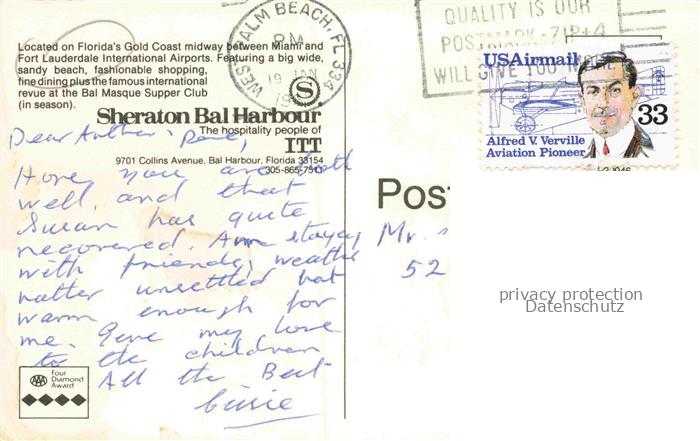 Located on Florida's Gold Coast midway between Miami and
Fort Lauderdale International Airports. Featuring a big wide,
sandy beach, fashionable shopping,
fine dining plus the famous international
revue at the Bal Masque Supper Club
(in season).
Sheraton Bal Harbour
The hospitality people of
ITT
9701 Collins Avenue, Bal Harbour, Florida 33154
305-865-7511
WEST PALM BEACH, FL 334
PM
19 JAN
QUALITY IS OUR
POSTMARK - ZIP+4
WILL GIVE YOU
USAirmail
33
Alfred V. Verville
Aviation Pioneer
Dear
Hope you are both
well, and that
Susan has quite
recovered. Am staying
with friends, weather
rather unsettled but
warm enough for
me. Give my love
to the children
All the Best
Post
Mr.
52
AAA
Four
Diamond
Award
privacy protection
Datenschutz